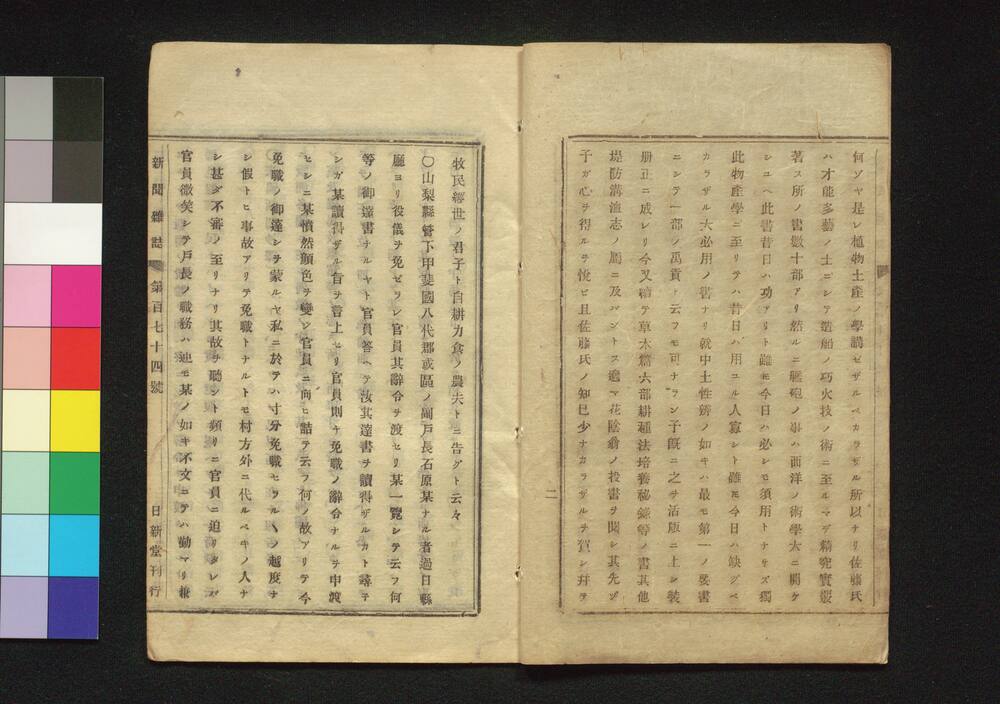 何ゾヤ是レ植物土産ノ學講ゼザルベカラザル所以ナリ佐藤氏
ハ才能多藝ノ士ニシテ造船ノ巧火技ノ術ニ至ルマデ精究實覈
著ス所ノ書數十部アリ然ルニ艦砲ノ事ハ西洋ノ術學大ニ開ケ
シユヘ此書昔日ハ功アリト雖モ今日ハ必シモ須用トナサズ獨
此物產學ニ至リテハ昔日ハ用ユル人寡シト雖モ今日ハ缺グベ
カラザル大必用ノ書ナリ就中土性辨ノ如キハ最モ第一ノ要書
ニシテ一部ノ禹貢ト云フモ可ナラン子既ニ之ヲ活版ニ上シ裝
册正ニ成レリ今又續テ草木篇六部耕種法培養秘錄等ノ書其他
堤防溝洫志ノ屬ニ及バントス適マ花陰翁ノ投書ヲ閱シ其先ヅ
子ガ心ヲ得ルヲ悅ビ且佐藤氏ノ知己少ナカラザルヲ賀シ幷テ
二
牧民經世ノ君子ト自耕力食ノ農夫トニ告グト云々
〇山梨縣管下甲斐國八代郡或區ノ副戸長石原某ナル者過日縣
廳ヨリ役儀ヲ免ゼラレ官員其辭令ヲ渡セリ某一覽シテ云フ何
等ノ御達書ナルヤト官員答ヘテ汝其達書ヲ讀得ザルカト尋テ
シガ某讀得ザル旨ヲ言上セリ官員則チ免職ノ辭令ナルヲ申渡
セシニ某憤然顏色ヲ變シ官員ニ向ヒ詰テ云フ何ノ故アリテ今
免職ノ御達シヲ蒙ルヤ私ニ於テハ寸分免職セラルヽノ越度ナ
シ假トヒ事故アリテ免職トナルトモ村方外ニ代ルベキノ人ナ
シ甚ダ不審ノ至リナリ其故ヲ聽ント頻リニ官員ニ迫リタレバ
官員微笑シテ戸長ノ職務ハ迚モ某ノ如キ不文ニテハ勤マリ兼
新聞雜誌 第百七十四號 日新堂刊行